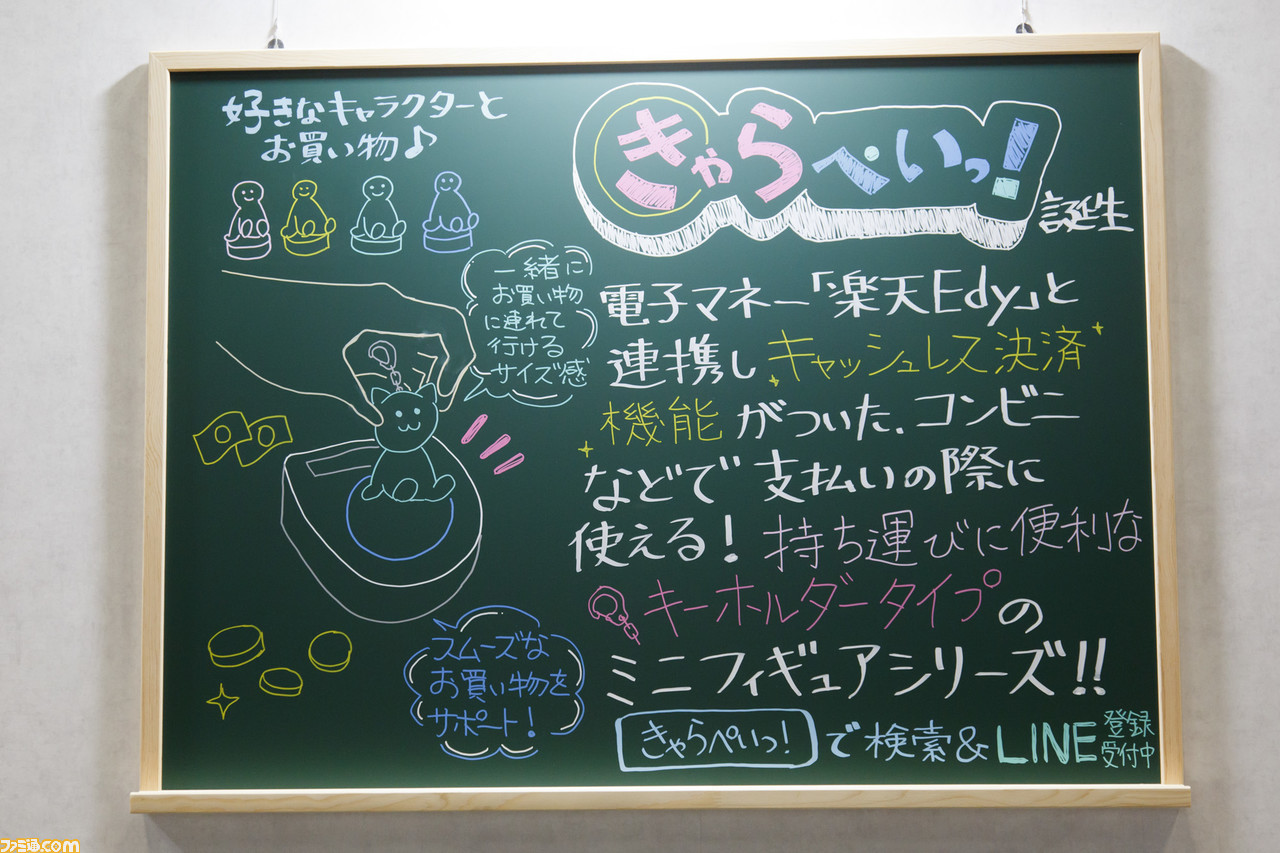 好きなキャラクターと
お買い物♪
きゃらぺいっ!
誕生
一緒に
お買い物
に連れて
行ける
サイズ感
電子マネー「楽天Edy」と
連携しキャッシュレス決済
機能がついた.コンビニ
などで支払いの際に
使える!持ち運びに便利な
キーホルダータイプの
ミニフィギュアシリーズ!!
スムーズな
お買い物を
サポート!
きゃらぺいっ!で検索&LINE登録
受付中
ファミ通.com